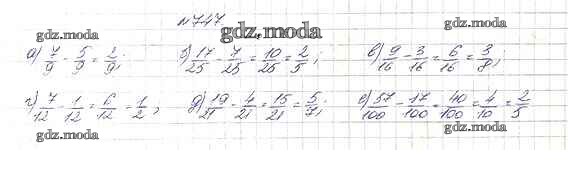 №747
gdz.moda gdz.moda gdz.moda
а) 7/9 - 5/9 = 2/9; б) 17/25 - 7/25 = 10/25 = 2/5; в) 9/16 - 3/16 = 6/16 = 3/8;
г) 7/12 - 1/12 = 6/12 = 1/2; д) 19/21 - 4/21 = 15/21 = 5/7; е) 57/100 - 17/100 = 40/100 = 4/10 = 2/5
gdz.moda gdz.moda gdz.moda